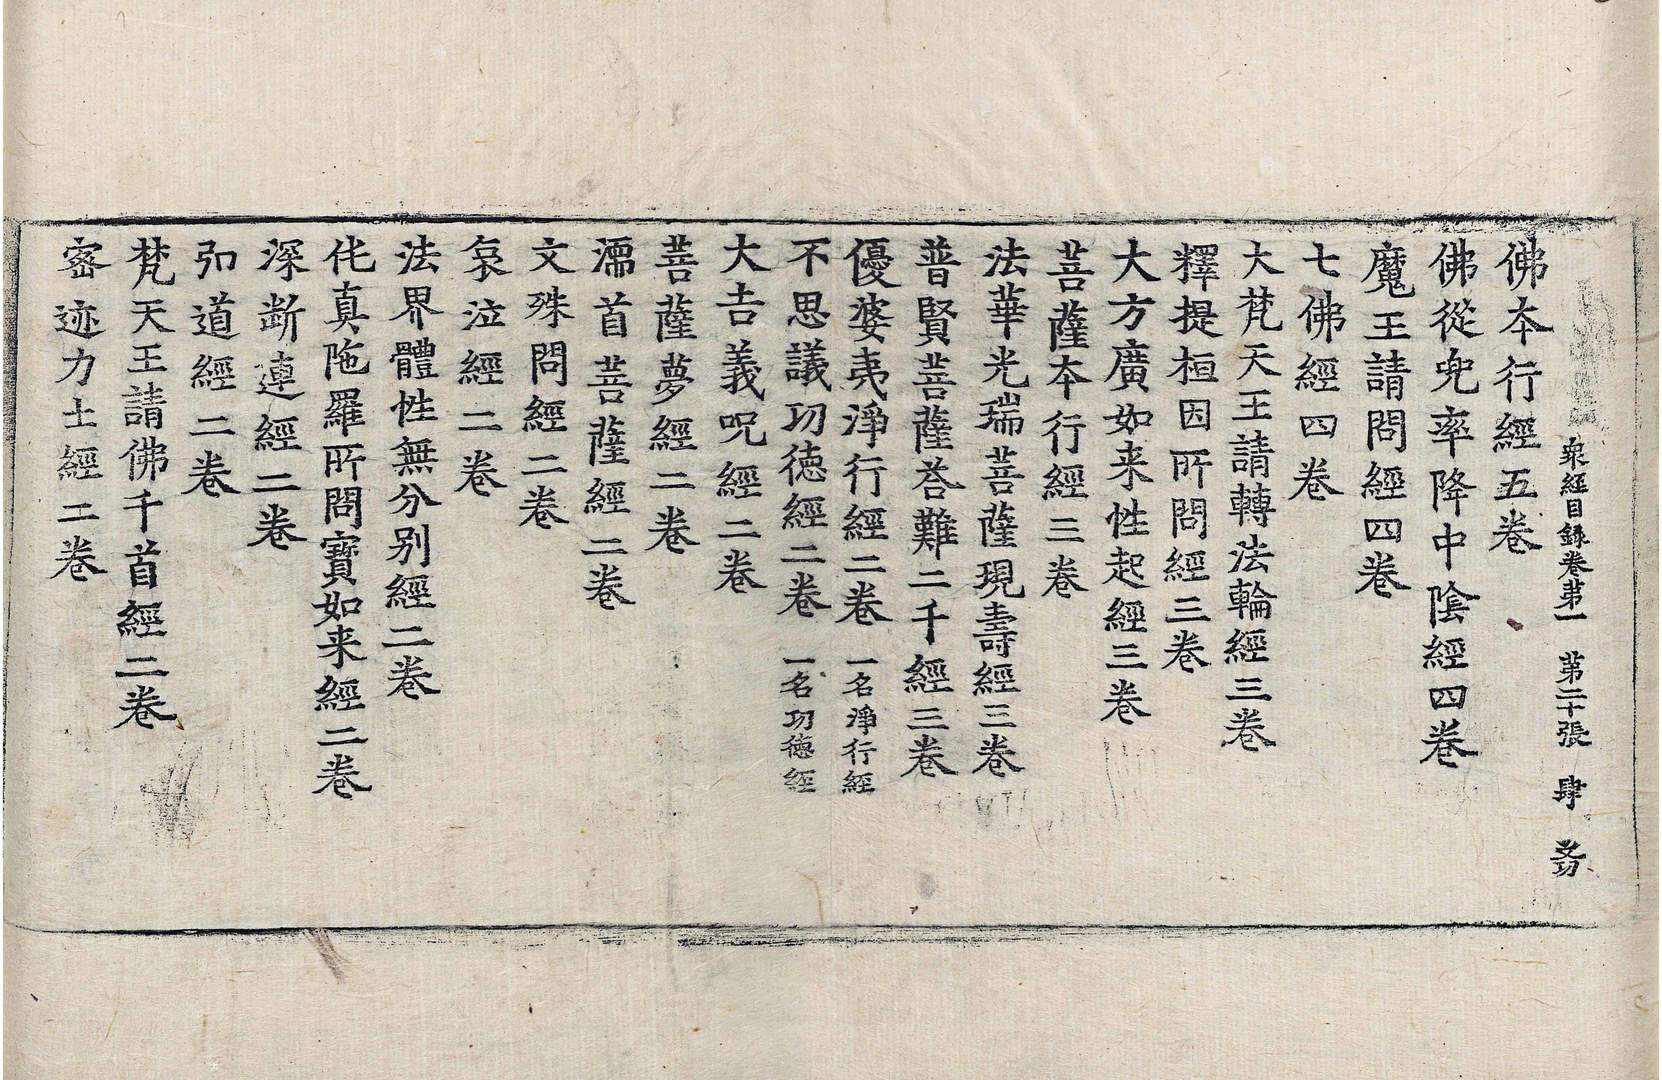 衆經目録卷苐一　苐二十張　肆
佛本行經五卷
佛從兜率降中陰經四卷
魔王請問經四卷
七佛經四卷
大梵天王請轉法輪經三卷
釋提桓因所問經三卷
大方廣如来性起經三卷
菩薩本行經三卷
法華光瑞菩薩現壽經三卷
普賢菩薩荅難二千經三卷
優婆夷淨行經二卷　一名淨行經
不思議功徳經二卷　一名功徳經
大吉義呪經二卷
菩薩夢經二卷
濡首菩薩經二卷
文殊問經二卷
哀泣經二卷
法界體性無分别經二卷
伅真陁羅所問寶如来經二卷
深斷連經二卷
弘道經二卷
梵天王請佛千首經二卷
宻迹力士經二卷